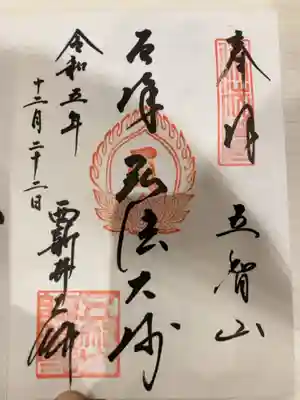 奉拝
五智山
厄除 弘法大師
令和五年
十二月二十二日
西新井大師